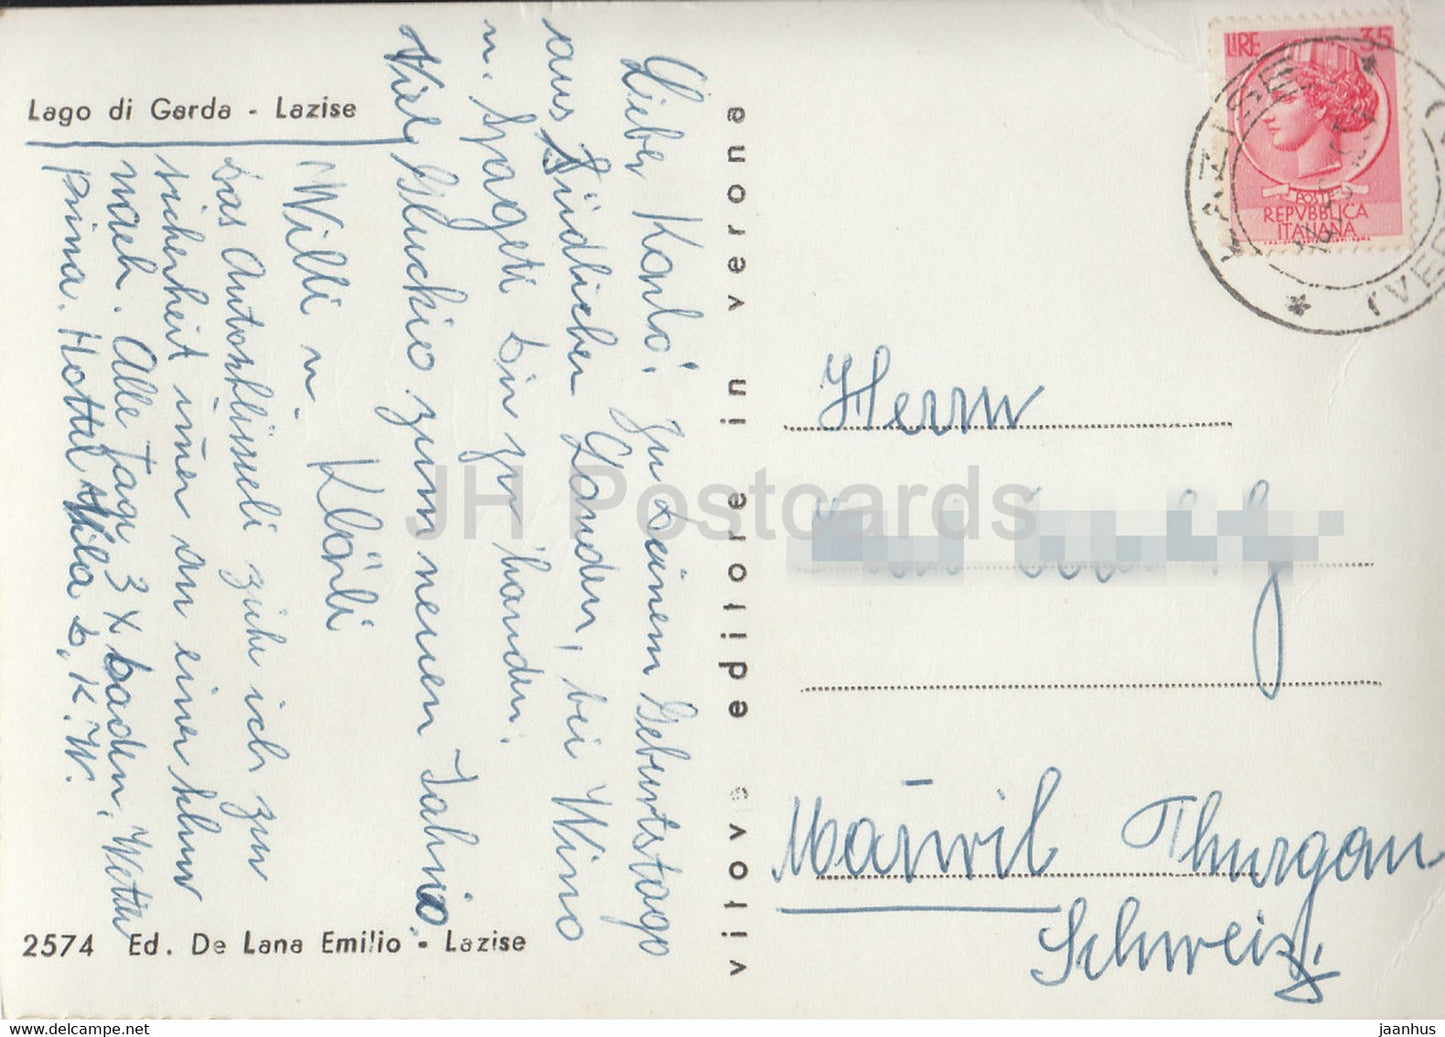 Lago di Garda - Lazise
Lieber Karlo! Zu Deinem Geburtstago
aus Südlichen Landen, bei Wino
u. Spageti bin zu handen.
Viel Gluckio zum neuen Jahrio.
Willi u. Klärli
das Autoshlüsseli zihe ich zur
sicherheit imer an einer shnur
nach. Alle Tage 3 X baden, Wetter
prima. Hottel Vila b, K.W.
2574 Ed. De Lana Emilio - Lazise
vitove editore in verona
LIRE 35
POSTE
REPVBBLICA
ITALIANA
LAZISE
(VER
Herrn
Märwil Thurgau
Schweiz
JH Postcards
www.hippostcard.com
jaanhus